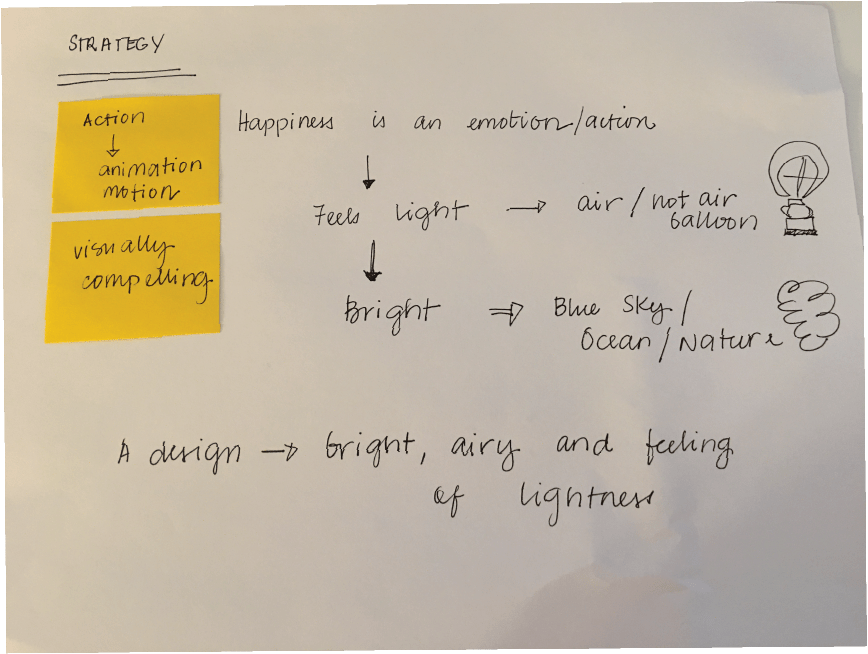 STRATEGY
Action
↓
animation
motion
visually
compelling
Happiness is an emotion/action
↓
Feels Light → air / not air
balloon
↓
Bright ⇒ Blue Sky /
Ocean / Nature
A design → bright, airy and feeling
of lightness